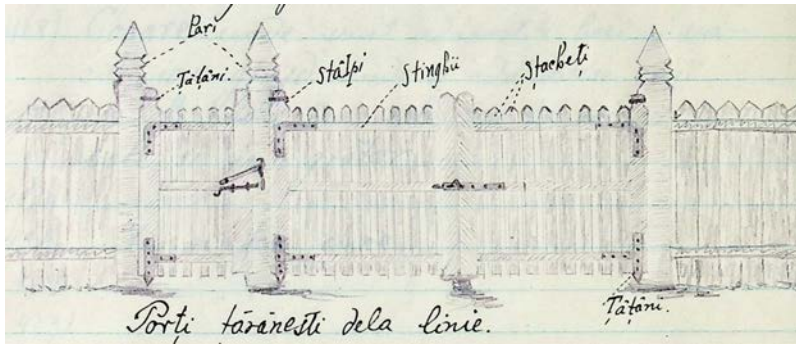 Pari
Țâțâni.
Stâlpi
Stinghii
Ștacheți
Țâțâni.
Porți tărănești dela linie.